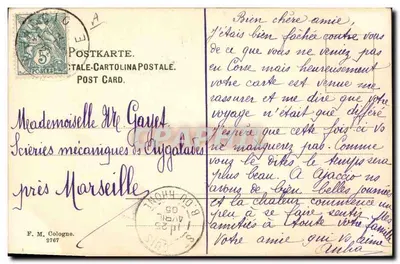 POSTKARTE.
TALE-CARTOLINA POSTALE.
POST CARD.
Mademoiselle M Gayet
mécaniques
près Marseille
F. M. Cologne.
2767
Bien chère amie,
J'étais bien fâchée contre vous
de ce que vous ne veniez pas
en Corse mais heureusement
votre carte est venue me
rassurer et me dire que votre
voyage n'était que différé
J'espère que cette fois ci vs
ne manquerez pas. Comme
vous le dites le temps sera
plus beau. A Ajaccio ns
avons de bien belles journées
et la chaleur commence un
peu à se faire sentir
amitiés à toute votre famille
Votre amie qui vs aime
AVRIL
05
B. DU RHONE